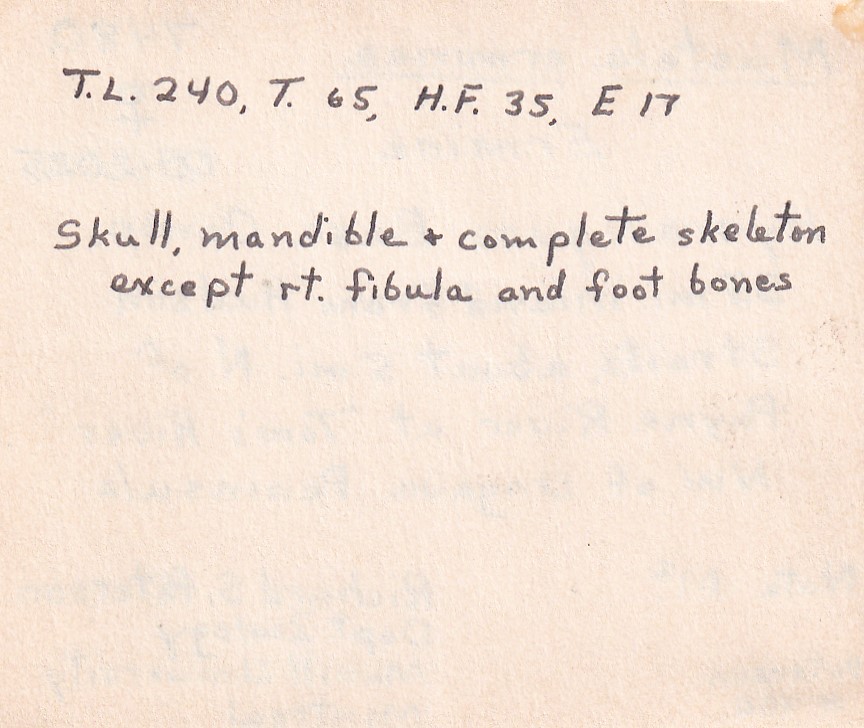 T.L. 240, T. 65, H.F. 35, E 17
Skull, mandible + complete skeleton
except rt. fibula and foot bones